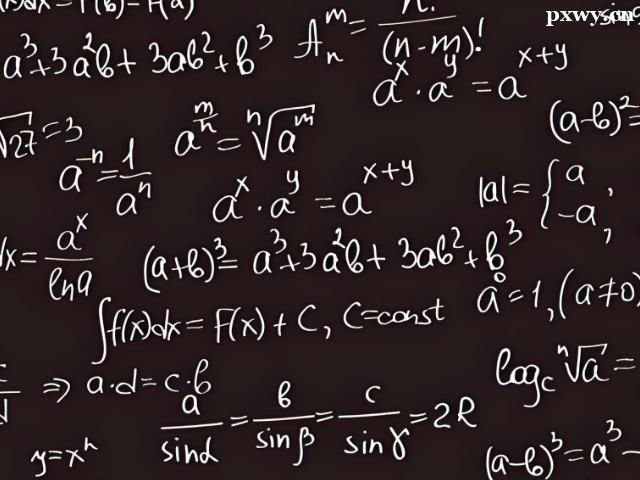 ∫f(x)dx = F(b) − F(a)
pxwy.cn
sin
a³+3a²b+3ab²+b³
Aₙᵐ = n! / (n-m)!
aˣ · aʸ = aˣ⁺ʸ
(a-b)²=
√27 = 3
a^(m/n) = ⁿ√(aᵐ)
a⁻ⁿ = 1/aⁿ
aˣ · aʸ = aˣ⁺ʸ
|a| = { a, -a,
dx = aˣ / ln a
(a+b)³ = a³+3a²b+3ab²+b³
a⁰ = 1, (a≠0)
∫f(x)dx = F(x) + C, C=const
⇒ a·d = c·b
log_c ⁿ√a =
a/sinα = b/sinβ = c/sinγ = 2R
y = xⁿ
(a-b)³ = a³ −